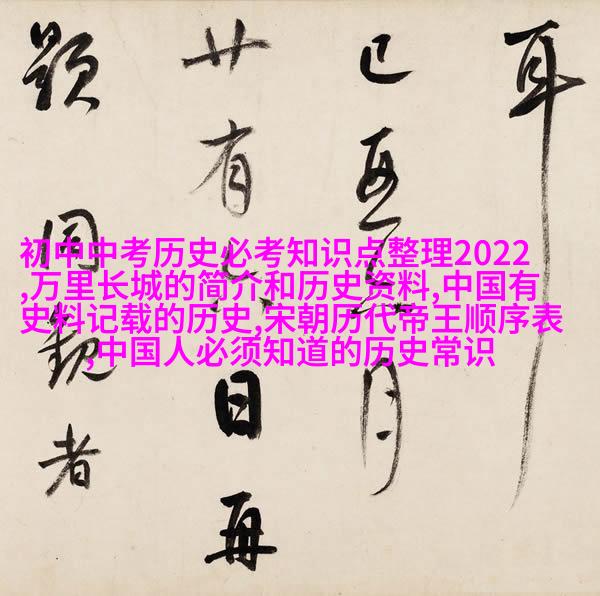 初中中考历史必考知识点整理2022
,万里长城的简介和历史资料,中国有
史料记载的历史,宋朝历代帝王顺序表
,中国人必须知道的历史常识
耳
月
廿有六日再
題同觀者